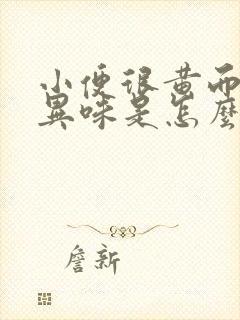 小便很黄而
異味是怎麼
詹新